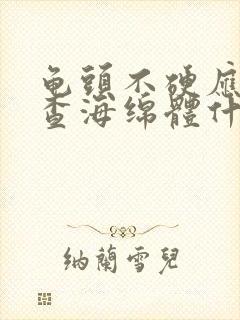 龟頭不硬應
查海绵體什
納蘭雪兒